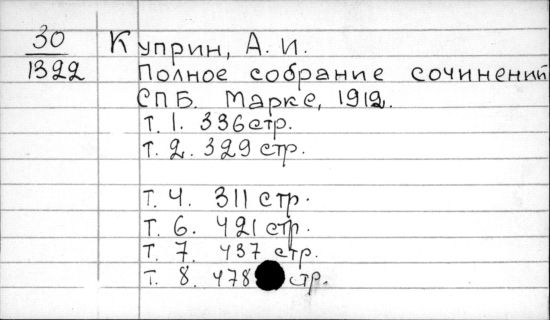 30
1322
Куприн, А. И.
Полное собрание сочинений
СПБ. Маркс, 1912.
т. 1. 336 стр.
т. 2. 329 стр.
т. 4. 311 стр.
т. 6. 421 стр.
т. 7. 437 стр.
т. 8. 478 стр.